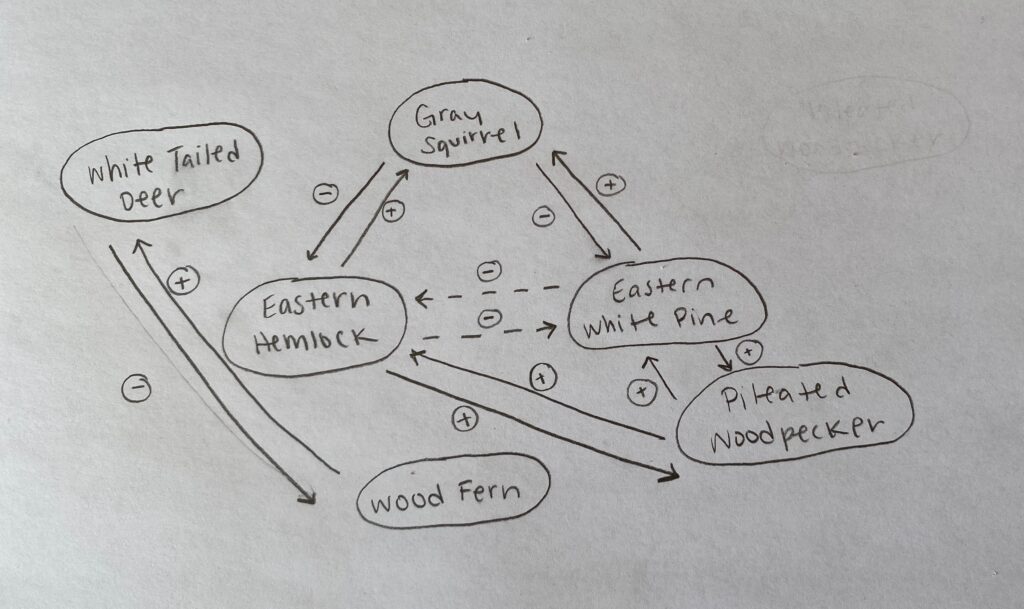 Gray
Squirrel
White Tailed
Deer
Eastern
Hemlock
Eastern
White Pine
Pileated
Woodpecker
Wood Fern
+
-
-
+
-
+
-
-
+
+
+
+
-